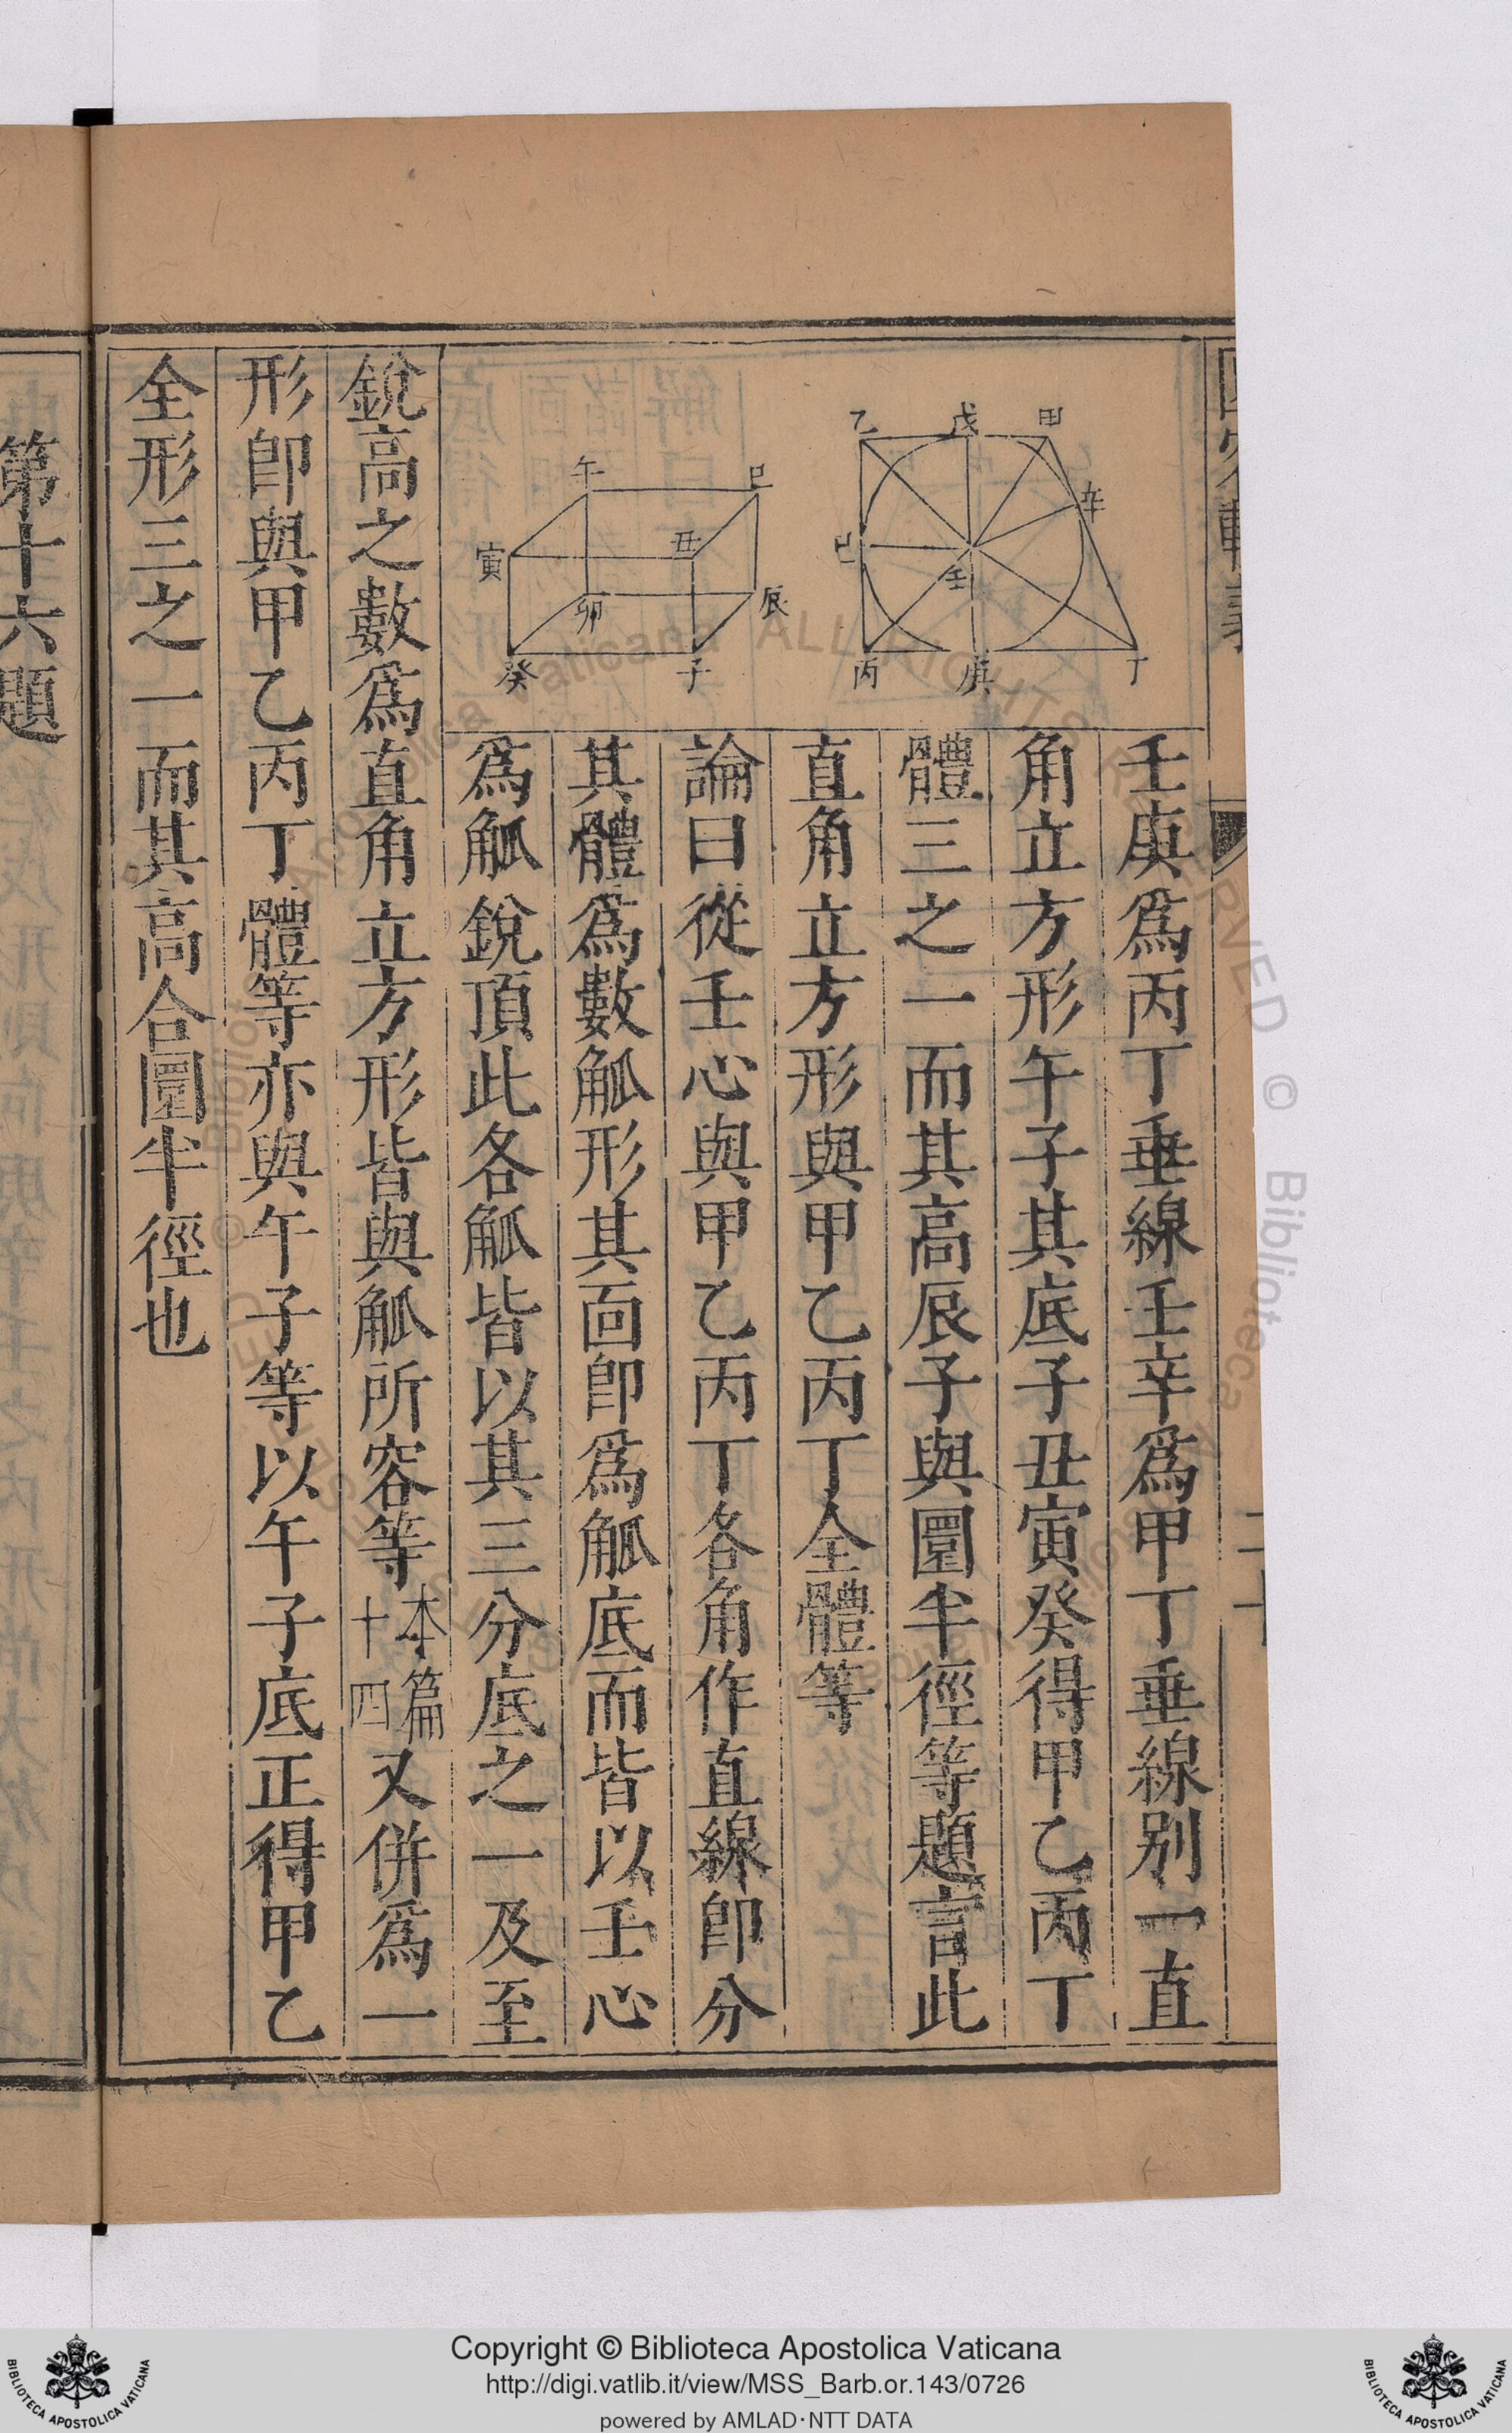 壬庚爲丙丁垂線壬辛爲甲丁垂線别一直
角立方形午子其底子丑寅癸得甲乙丙丁
體三之一而其高辰子與圜半徑等題言此
直角立方形與甲乙丙丁全體等
論曰從壬心與甲乙丙丁各角作直線卽分
其體爲數觚形其面卽爲觚底而皆以壬心
爲觚銳頂此各觚皆以其三分底之一及至
銳高之數爲直角立方形皆與觚所容等本篇十四又併爲一
形卽與甲乙丙丁體等亦與午子等以午子底正得甲乙
全形三之一而其高合圜半徑也
甲
戊
乙
辛
己
壬
丁
庚
丙
巳
午
丑
寅
辰
卯
子
癸
第十六題
Copyright © Biblioteca Apostolica Vaticana
http://digi.vatlib.it/view/MSS_Barb.or.143/0726
powered by AMLAD·NTT DATA
BIBLIOTECA APOSTOLICA VATICANA
BIBLIOTECA APOSTOLICA VATICANA